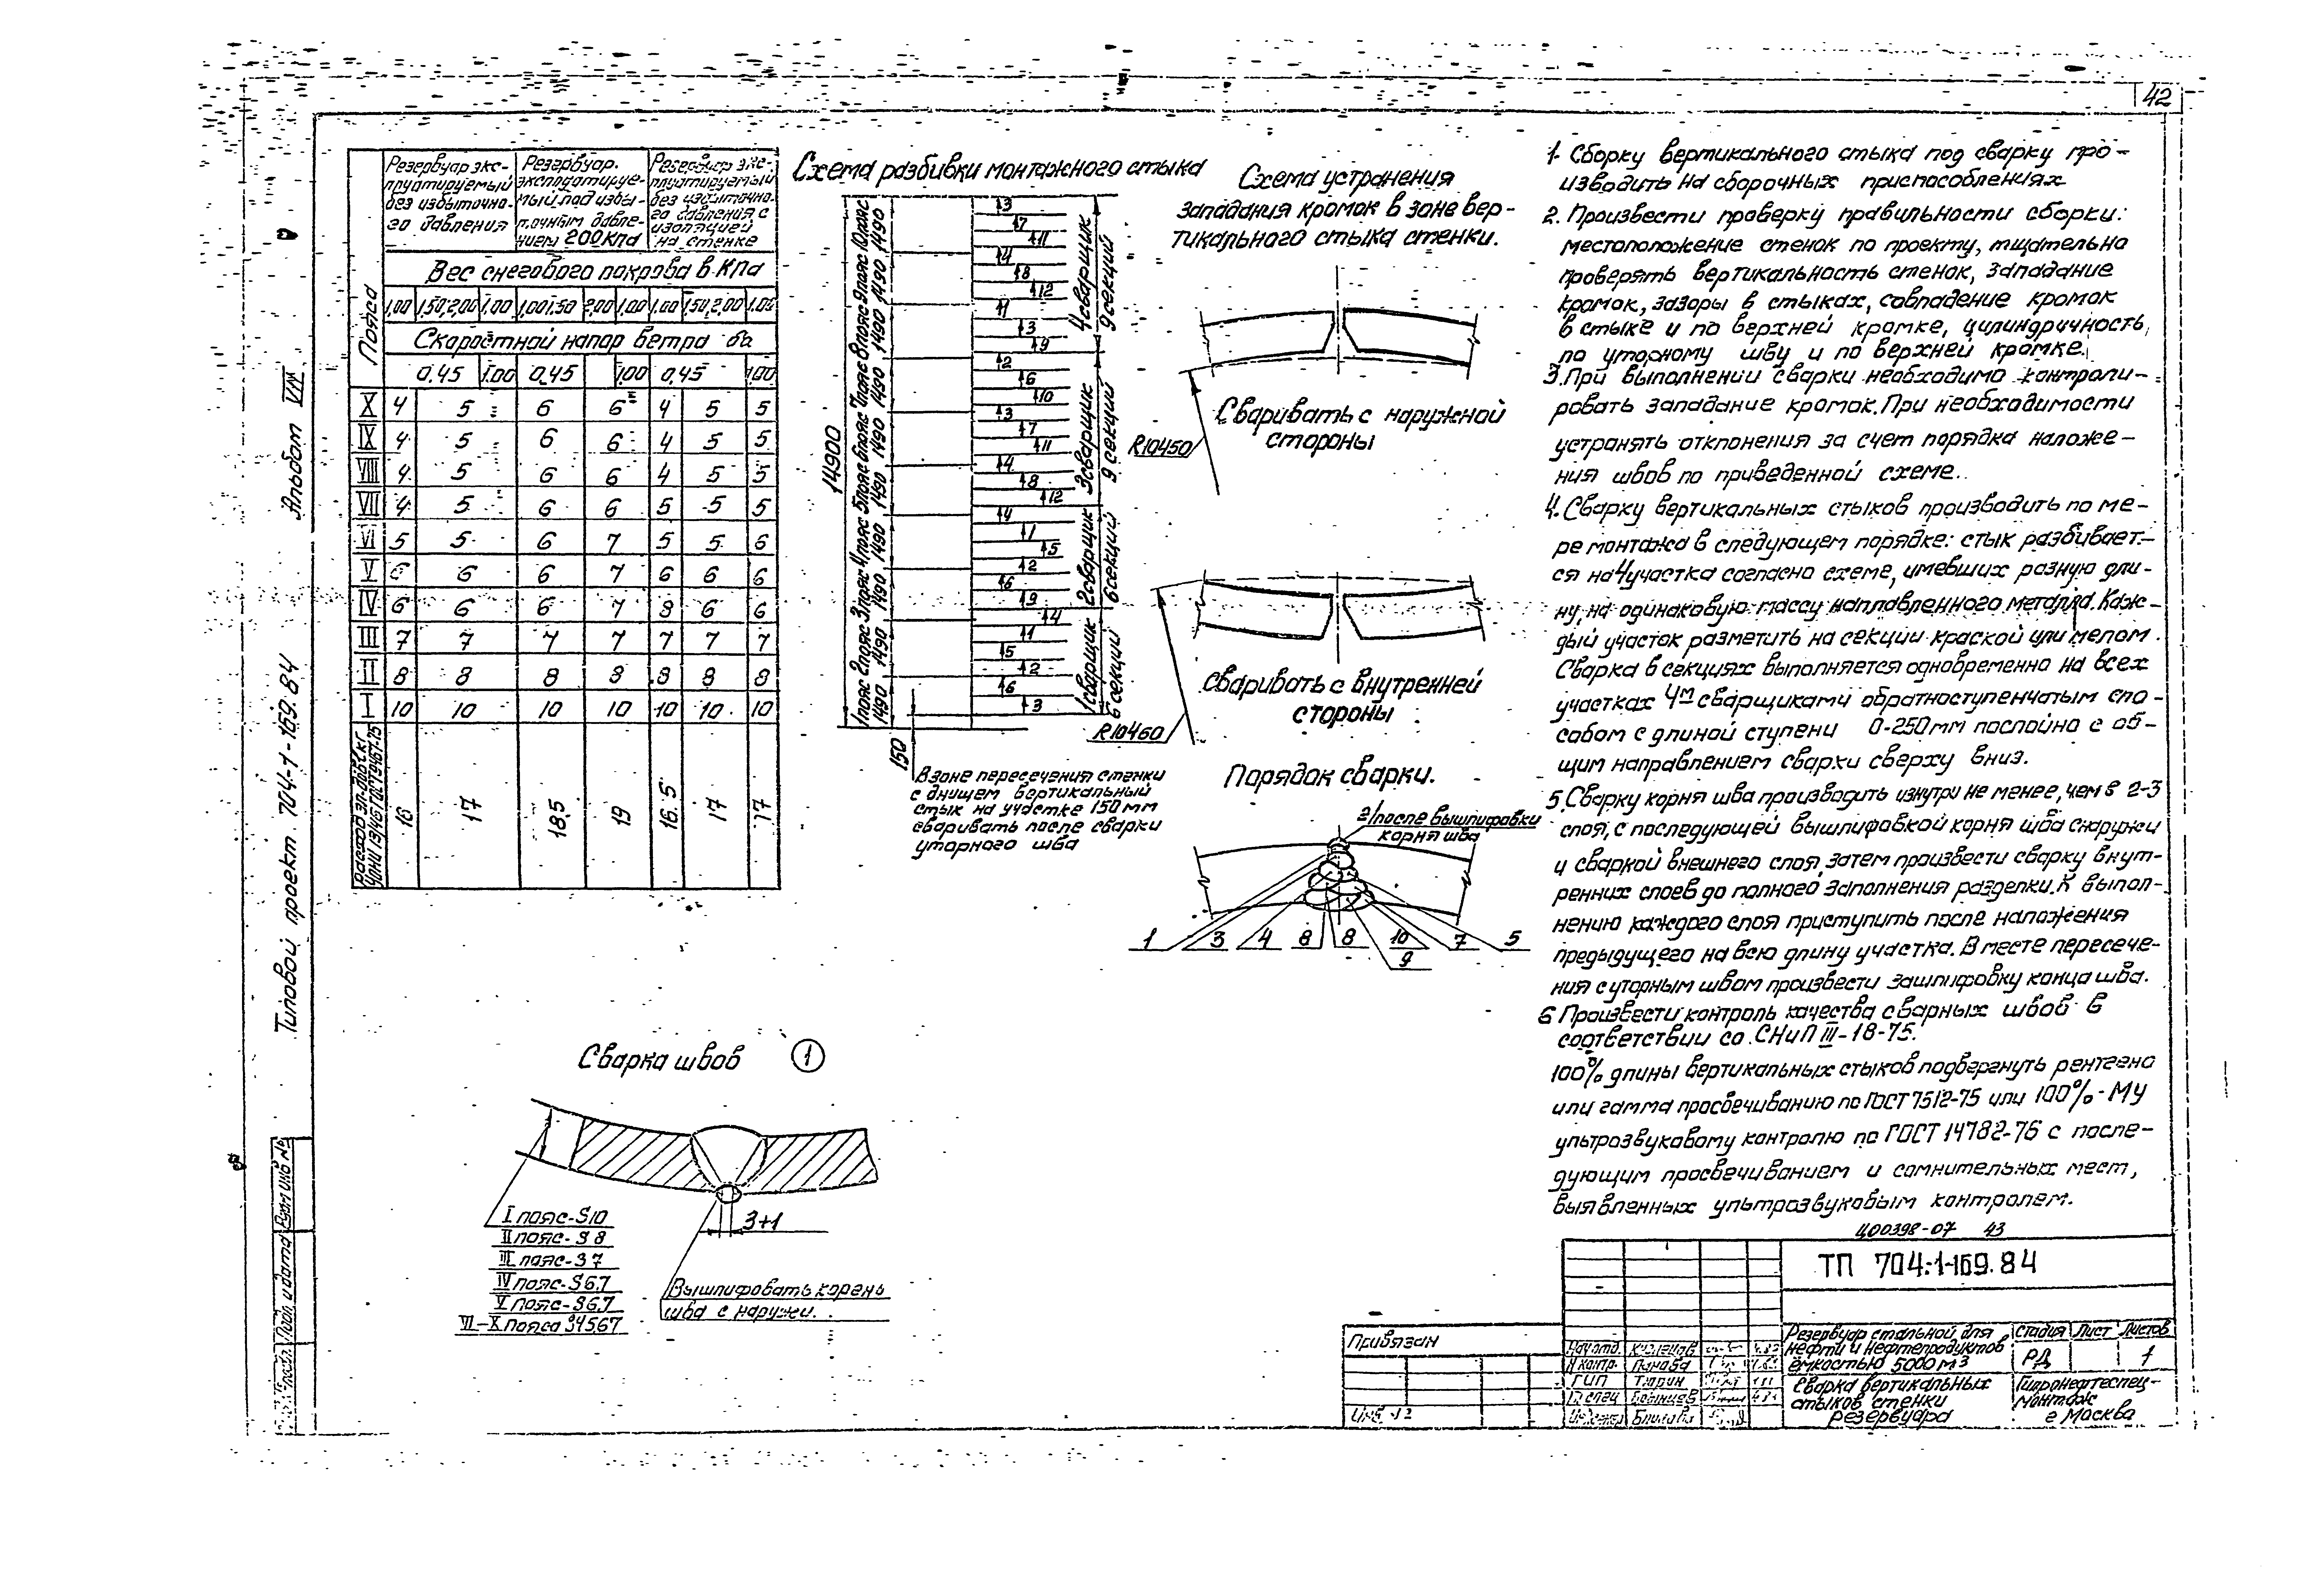 42
Резервуар экс-
плуатируемый
без избыточно-
го давления
Резервуар.
эксплуатируе-
мый под избы-
точным давле-
нием 200КПа
Резервуар экс-
плуатируемый
без избыточно-
го давления с
изоляцией
на стенке
Пояса
Вес снегового покрова в КПа
1,00 1,50;2,00 1.00 1,00 1,50 2,00 1,00 1.00 1,50,2,00 1.00
Скоростной напор ветра
0,45 1.00 0,45 1,00 0,45 1,00
X 4 5 6 6 4 5 5
IX 4 5 6 6 4 5 5
VIII 4 5 6 6 4 5 5
VII 4 5 6 6 5 5 5
VI 5 5 6 7 5 5 6
V 6 6 6 7 6 6 6
IV 6 6 6 7 6 6
III 7 7 7 7 7 7 7
II 8 8 8 8 8 8 8
I 10 10 10 10 10 10 10
16 17 18,5 19 16.5 17 17
Схема разбивки монтажного стыка
14900
1пояс 2пояс 3пояс 4пояс 5пояс 6пояс 7пояс 8пояс 9пояс 10пояс
1490 1490 1490 1490 1490 1490 1490 1490 1490 1490
3
7
11
4
8
12
1
3
9
2
6
10
3
7
11
4
8
12
4
1
5
2
6
9
4
1
5
2
6
3
4сварщик
9секций
3сварщик
9 секций
2сварщик
6секций
1сварщик
6 секций
150
В зоне пересечения стенки
с днищем вертикальный
стык на участке 150мм
сваривать после сварки
уторного шва
Схема устранения
западания кромок в зоне вер-
тикального стыка стенки.
R10450
Сваривать с наружной
стороны
Сваривать с внутренней
стороны
R10460
Порядок сварки.
2/после вышлифовки
корня шва
1 3 4 8 8 10 7 5
9
Сварка швов 1
3+1
I пояс-S10
II пояс-S8
III пояс-S7
IV пояс-S6.7
V пояс-S6,7
VI-X пояса S4567
Вышлифовать корень
шва с наружи.
1. Сборку вертикального стыка под сварку про-
изводить на сборочных приспособлениях
2. Произвести проверку правильности сборки:
местоположение стенок по проекту, тщательно
проверять вертикальность стенок, западание
кромок, зазоры в стыках, совпадение кромок
в стыке и по верхней кромке, цилиндричность
по уторному шву и по верхней кромке.
3.При выполнении сварки необходимо контроли-
ровать западание кромок.При необходимости
устранять отклонения за счет порядка наложе-
ния швов по приведенной схеме.
4. Сварку вертикальных стыков производить по ме-
ре монтажа в следующем порядке: стык разбивает-
ся на 4участка согласно схеме, имевших разную дли-
ну, на одинаковую массу наплавленного металла.Каж-
дый участок разметить на секции краской или мелом.
Сварка в секциях выполняется одновременно на всех
участках 4м сварщиками обратноступенчатым спо-
собом с длиной ступени 0-250мм послойно с об-
щим направлением сварки сверху вниз.
5.Сварку корня шва производить изнутри не менее, чем в 2-3
слоя, с последующей вышлифовкой корня шва снаружи
и сваркой внешнего слоя, затем произвести сварку внут-
ренних слоев до полного заполнения разделки.К выпол-
нению каждого слоя приступить после наложения
предыдущего на всю длину участка.В месте пересече-
ния с уторным швом произвести зашлифовку конца шва.
6 Произвести контроль качества сварных швов в
соответствии со СНиП III-18-75.
100% длины вертикальных стыков подвергнуть рентгено
или гамма просвечиванию по ГОСТ 7512-75 или 100%-му
ультразвуковому контролю по ГОСТ 14782-76 с после-
дующим просвечиванием и сомнительных мест,
выявленных ультразвуковым контролем.
Ц00398-07 43
ТП 704-1-169.84
Резервуар стальной для
нефти и нефтепродуктов
ёмкостью 5000м3
Стадия Лист Листов
РД 1
Сварка вертикальных
стыков стенки
резервуара
Гипронефтеспец-
монтаж
г Москва
Привязан
Нач отд.
Н контр.
ГИП Тюрин
Типовой проект 704-1-169.84
Альбом VIII
Подп. и дата